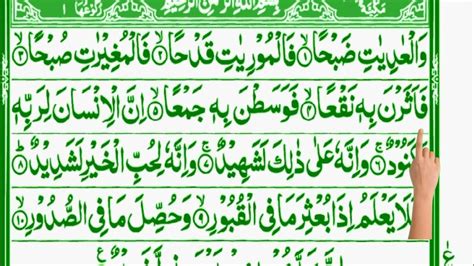 بِسْمِ اللهِ الرَّحْمٰنِ الرَّحِيْمِ
وَالْعٰدِيٰتِ ضَبْحًا ۙ۱ فَالْمُوْرِيٰتِ قَدْحًا ۙ۲ فَالْمُغِيْرٰتِ صُبْحًا ۙ۳
فَاَثَرْنَ بِهٖ نَقْعًا ۙ۴ فَوَسَطْنَ بِهٖ جَمْعًا ۙ۵ اِنَّ الْاِنْسَانَ لِرَبِّهٖ
لَكَنُوْدٌ ۚ۶ وَاِنَّهٗ عَلٰى ذٰلِكَ لَشَهِيْدٌ ۚ۷ وَاِنَّهٗ لِحُبِّ الْخَيْرِ لَشَدِيْدٌ ؕ۸
اَفَلَا يَعْلَمُ اِذَا بُعْثِرَ مَا فِى الْقُبُوْرِ ۙ۹ وَحُصِّلَ مَا فِى الصُّدُوْرِ ۙ۱۰